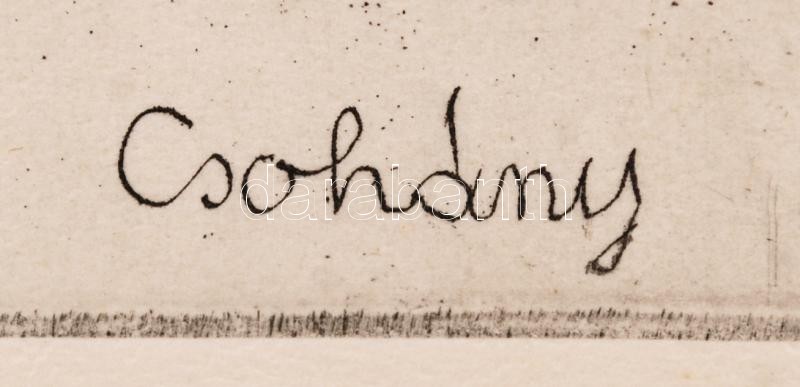 Csohány
darabanth